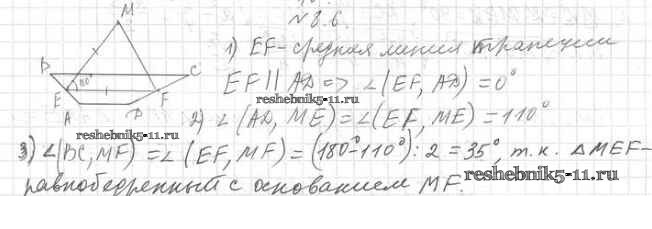 №8.6.
M
1) EF - средняя линия трапеции
B
C
EF || AD => ∠(EF, AD) = 0°
110°
E
F
reshebnik5-11.ru
A
D
2) ∠(AD, ME) = ∠(EF, ME) = 110°
reshebnik5-11.ru
3) ∠(BC, MF) = ∠(EF, MF) = (180°-110°):2 = 35°, т.к. △MEF-
равнобедренный с основанием MF.
reshebnik5-11.ru